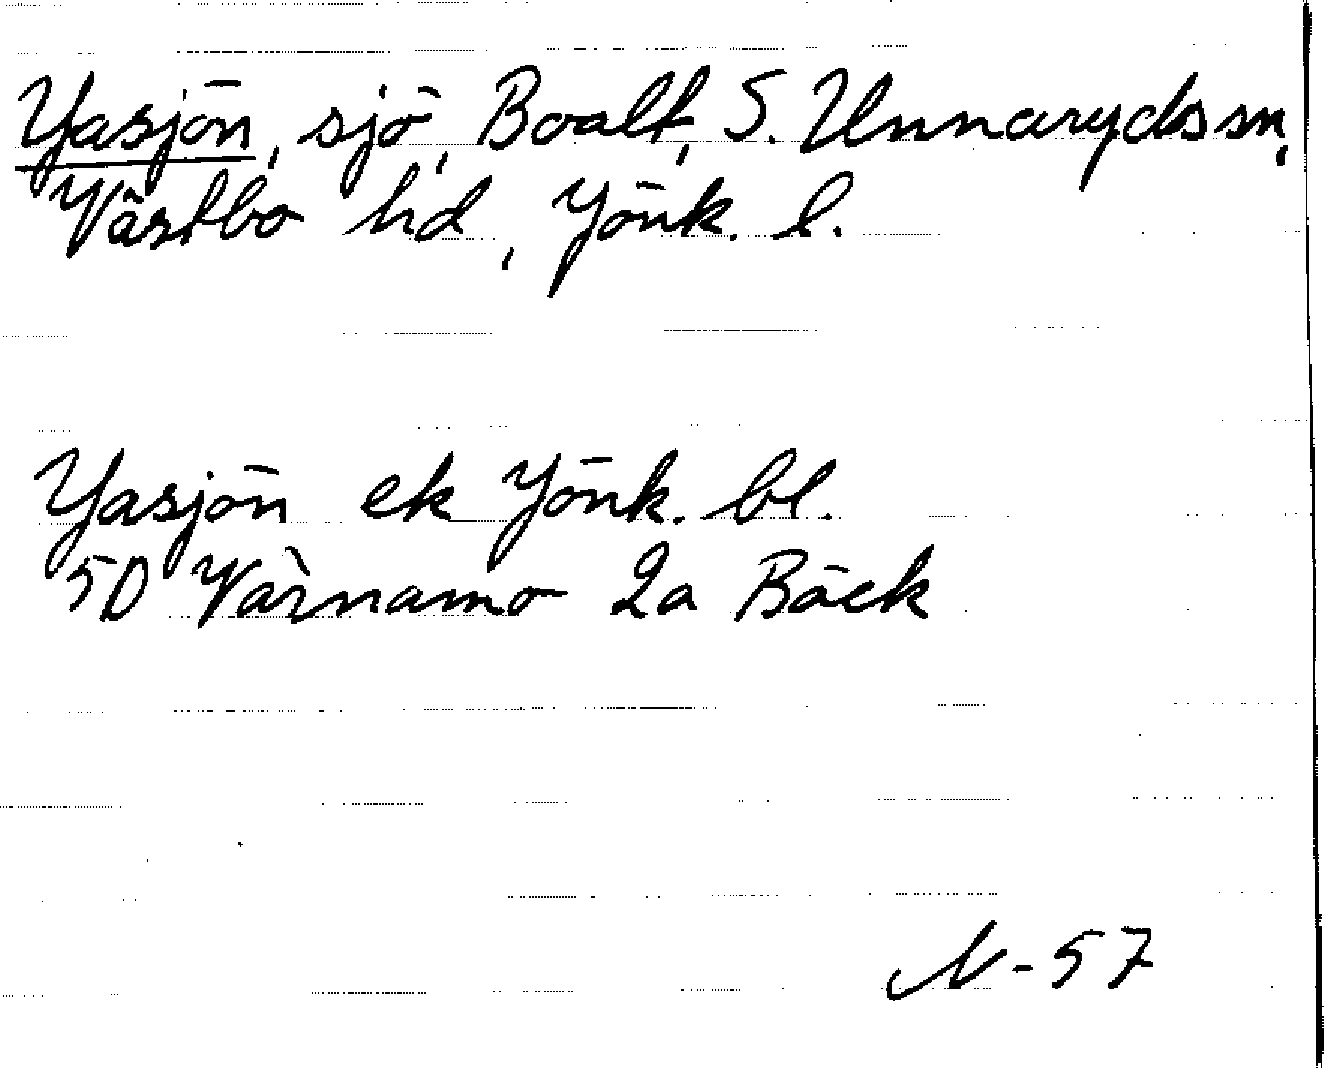 Yasjön, sjö, Boalt, S. Unnaryds sn,
Västbo hd, Jönk. l.
Yasjön ek Jönk. bl.
5D Värnamo 2a Bäck
N-57